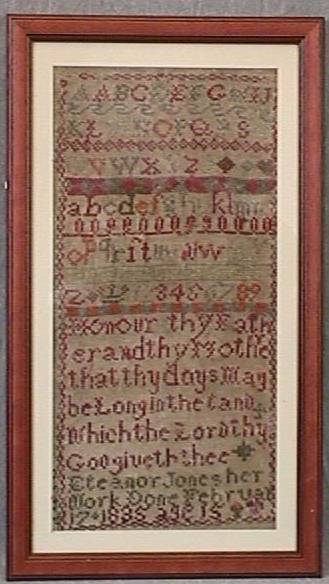 A A B C D E F G H I J
K L O P Q S
V W X Y Z
a b c d e f g h i k l m n
o p q r s t u v w
1 2 3 4 5 6 7 8 9
Honour thy Fath
er and thy Mothe
that thy days May
be Long in the Land
Which the Lord thy
God giveth thee
Eleanor Jones her
Work Done Februar
17 1885 age 15